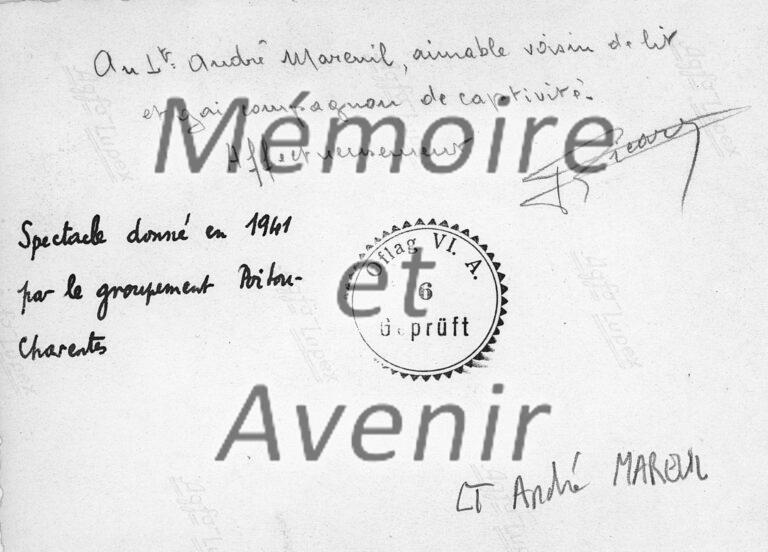 Au Lt. André Mareuil, aimable voisin de lit
et gai compagnon de captivité.
Affectueusement
Mémoire
Spectacle donné en 1941
par le groupement Poitou-
Charentes
Oflag VI. A.
6
Geprüft
et
Avenir
LT André MAREUIL
Agfa Lupex
Agfa Lupex
Agfa Lupex
Agfa Lupex